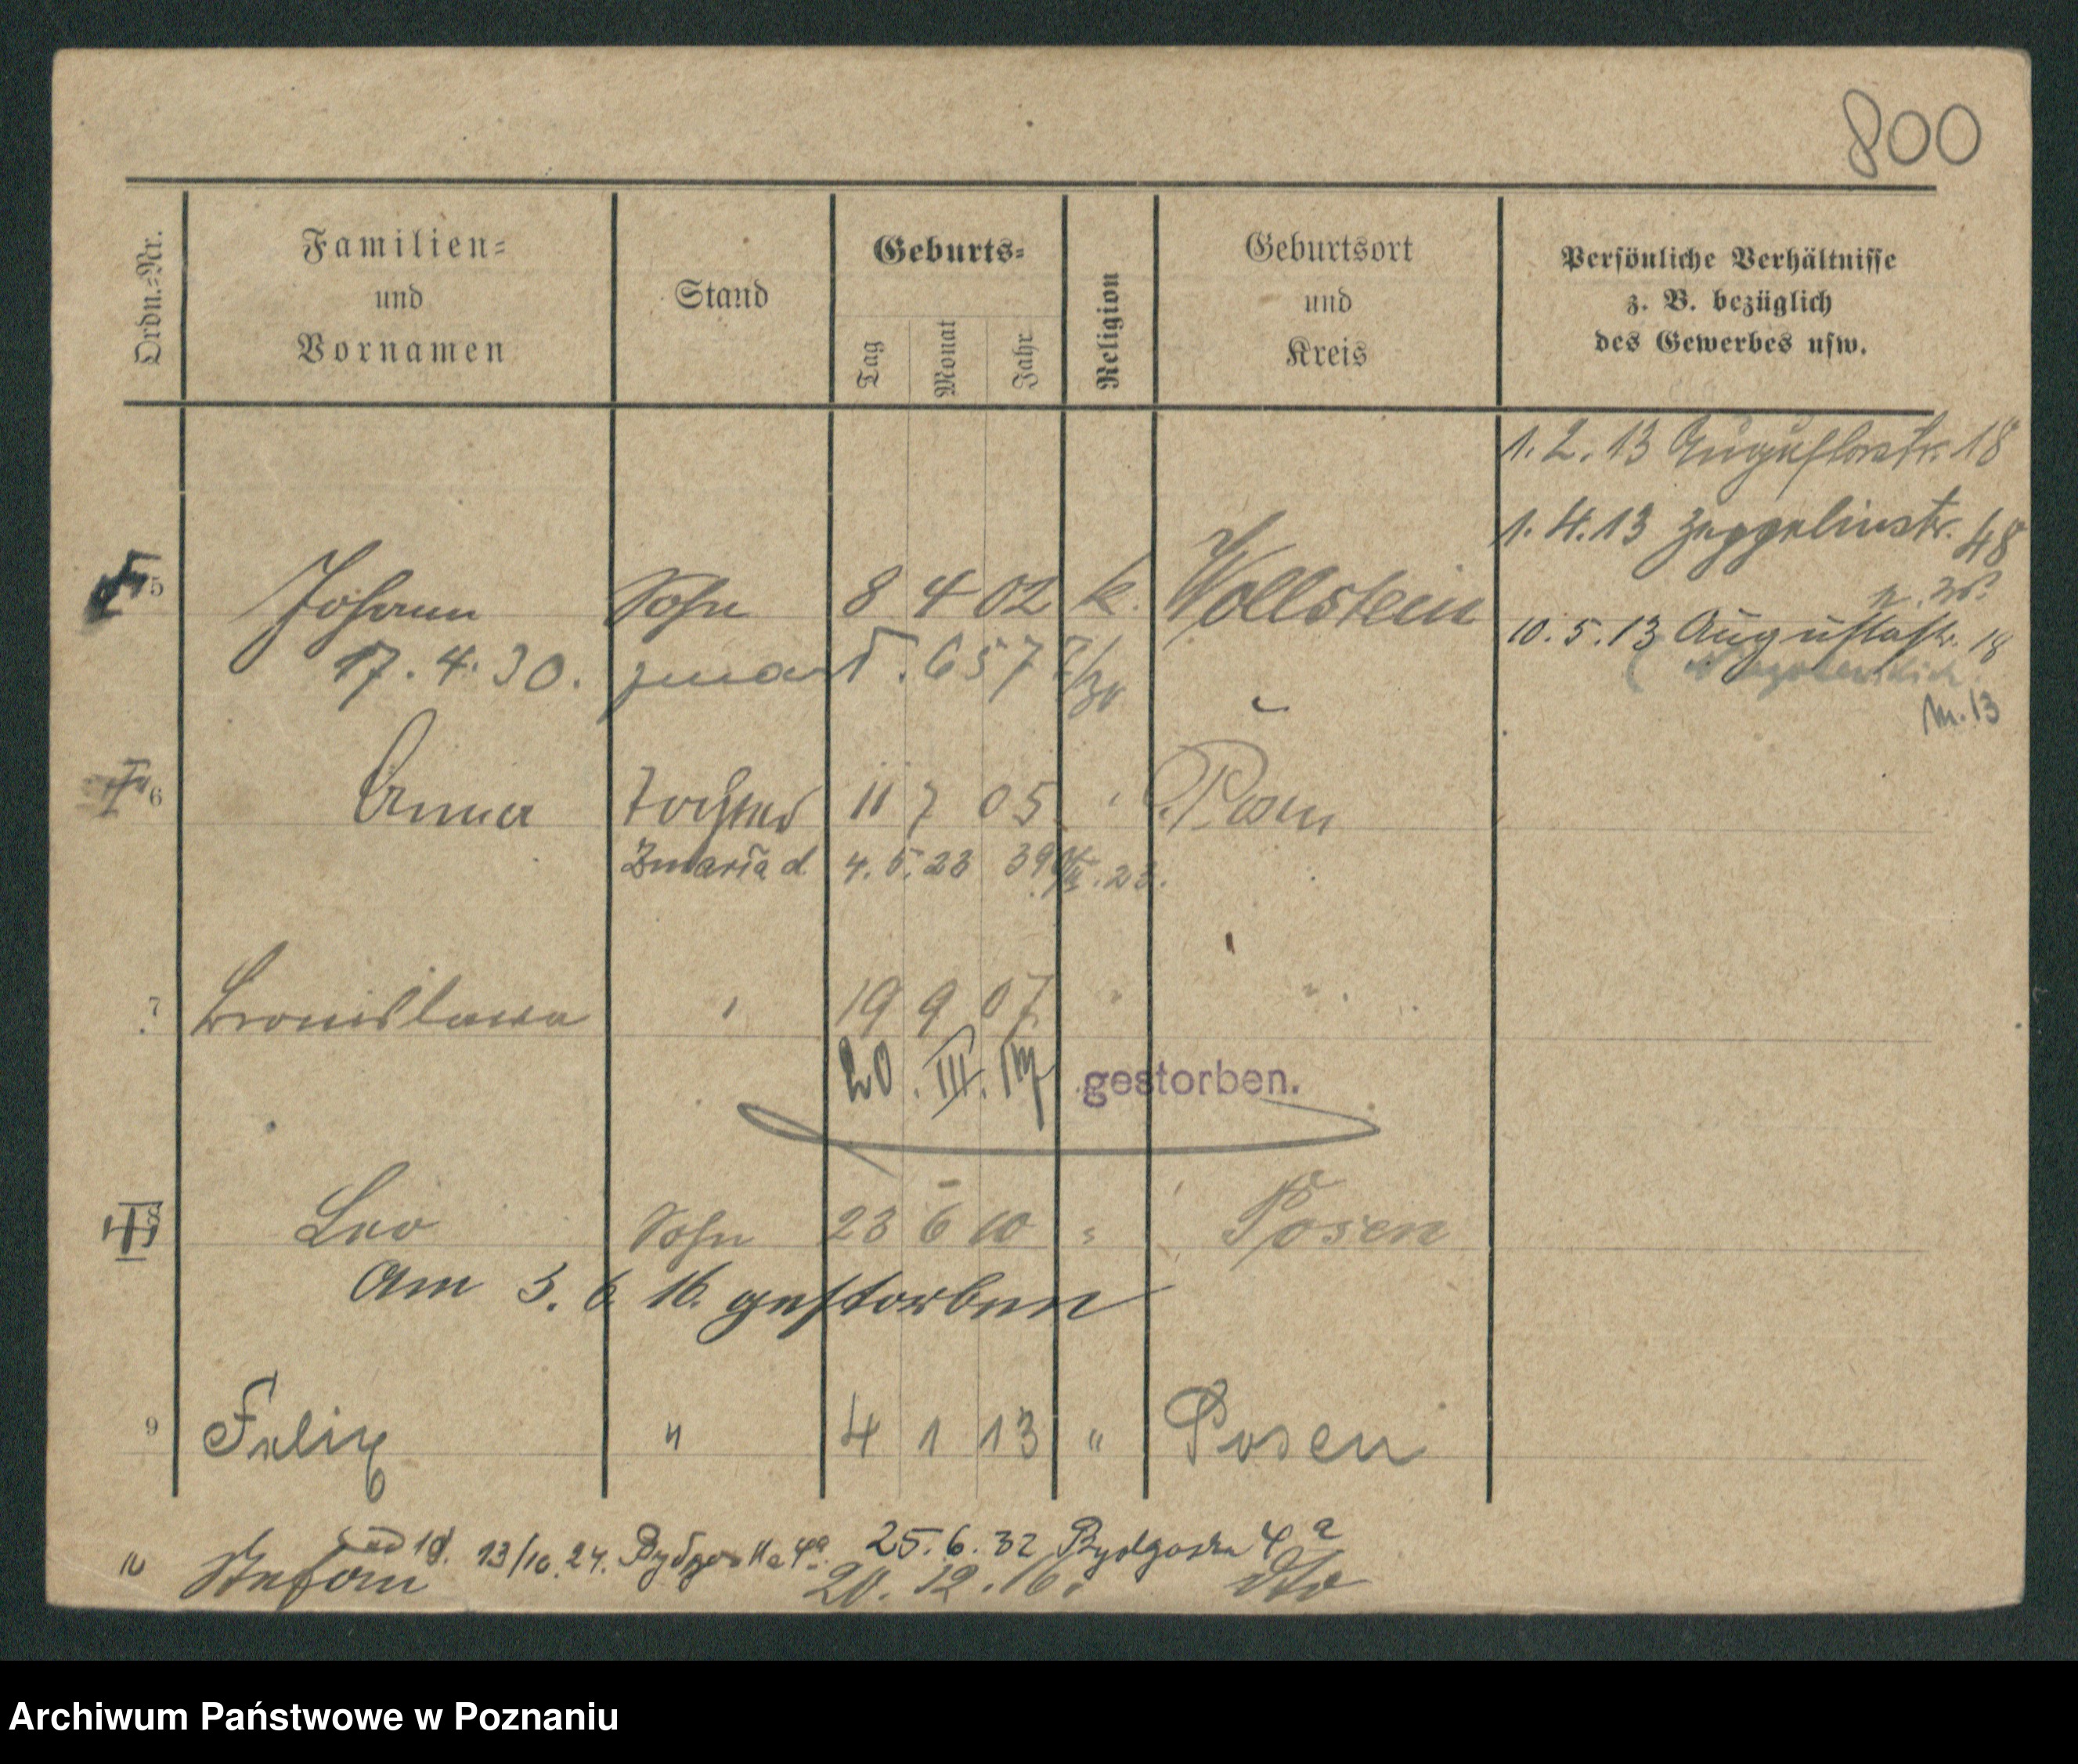 800
Ordn.-Nr.
Familien-
und
Vornamen
Stand
Geburts-
Tag
Monat
Jahr
Religion
Geburtsort
und
Kreis
Persönliche Verhältnisse
z. B. bezüglich
des Gewerbes usw.
1. 2. 13 Augustastr. 18
1. 4. 13 Zeppelinstr. 48
5 Johann Sohn 8 4 02 k. Wollstein
10. 5. 13 Augustastr. 18
17. 4. 30. zmarł. 657
M. 13
6 Anna Tochter 11 7 05 Posen
4. 5. 23
7 Bronislawa 19 9 07
20. III. gestorben.
8 Leo Sohn 23 6 10 Posen
Am 3. 6. 16. gestorben
9 Felix " 4 1 13 " Posen
13/10. 24. Bydgoska 4a 25. 6. 32 Bydgoska 4a
10 Stefan 20. 12. 16. dto
Archiwum Państwowe w Poznaniu